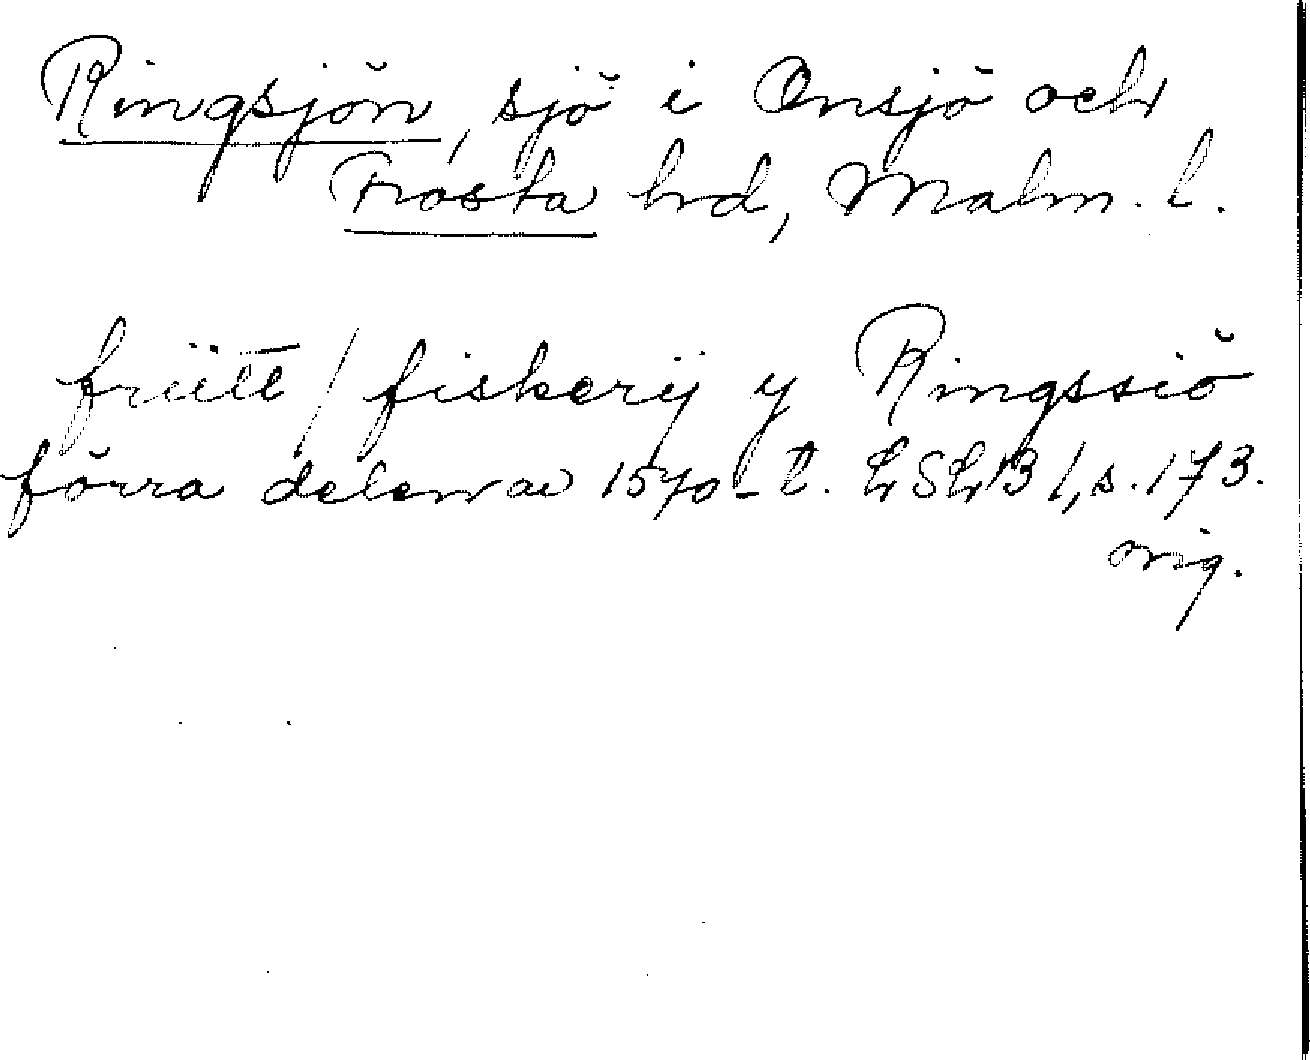 Ringsjön, sjö i Onsjö och
Frosta hd, Malm. l.
friitt / fiskerij y Ringssiö
förra delen av 1570-t. LSLB 1, s. 173.
orig.